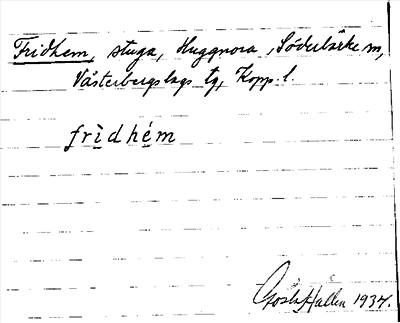 Fridhem, stuga, Huggnora, Söderbärke sn,
Västerbergslags tg, Kopp. l.
frìdhém
Gösta Hallén 1934.